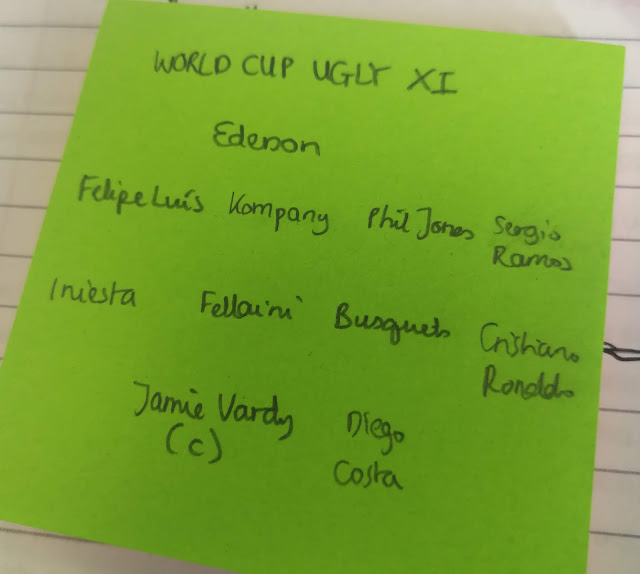 WORLD CUP UGLY XI
Ederson
Felipe Luís Kompany Phil Jones Sergio
Ramos
Iniesta Fellaini Busquets Cristiano
Ronaldo
Jamie Vardy Diego
(c) Costa